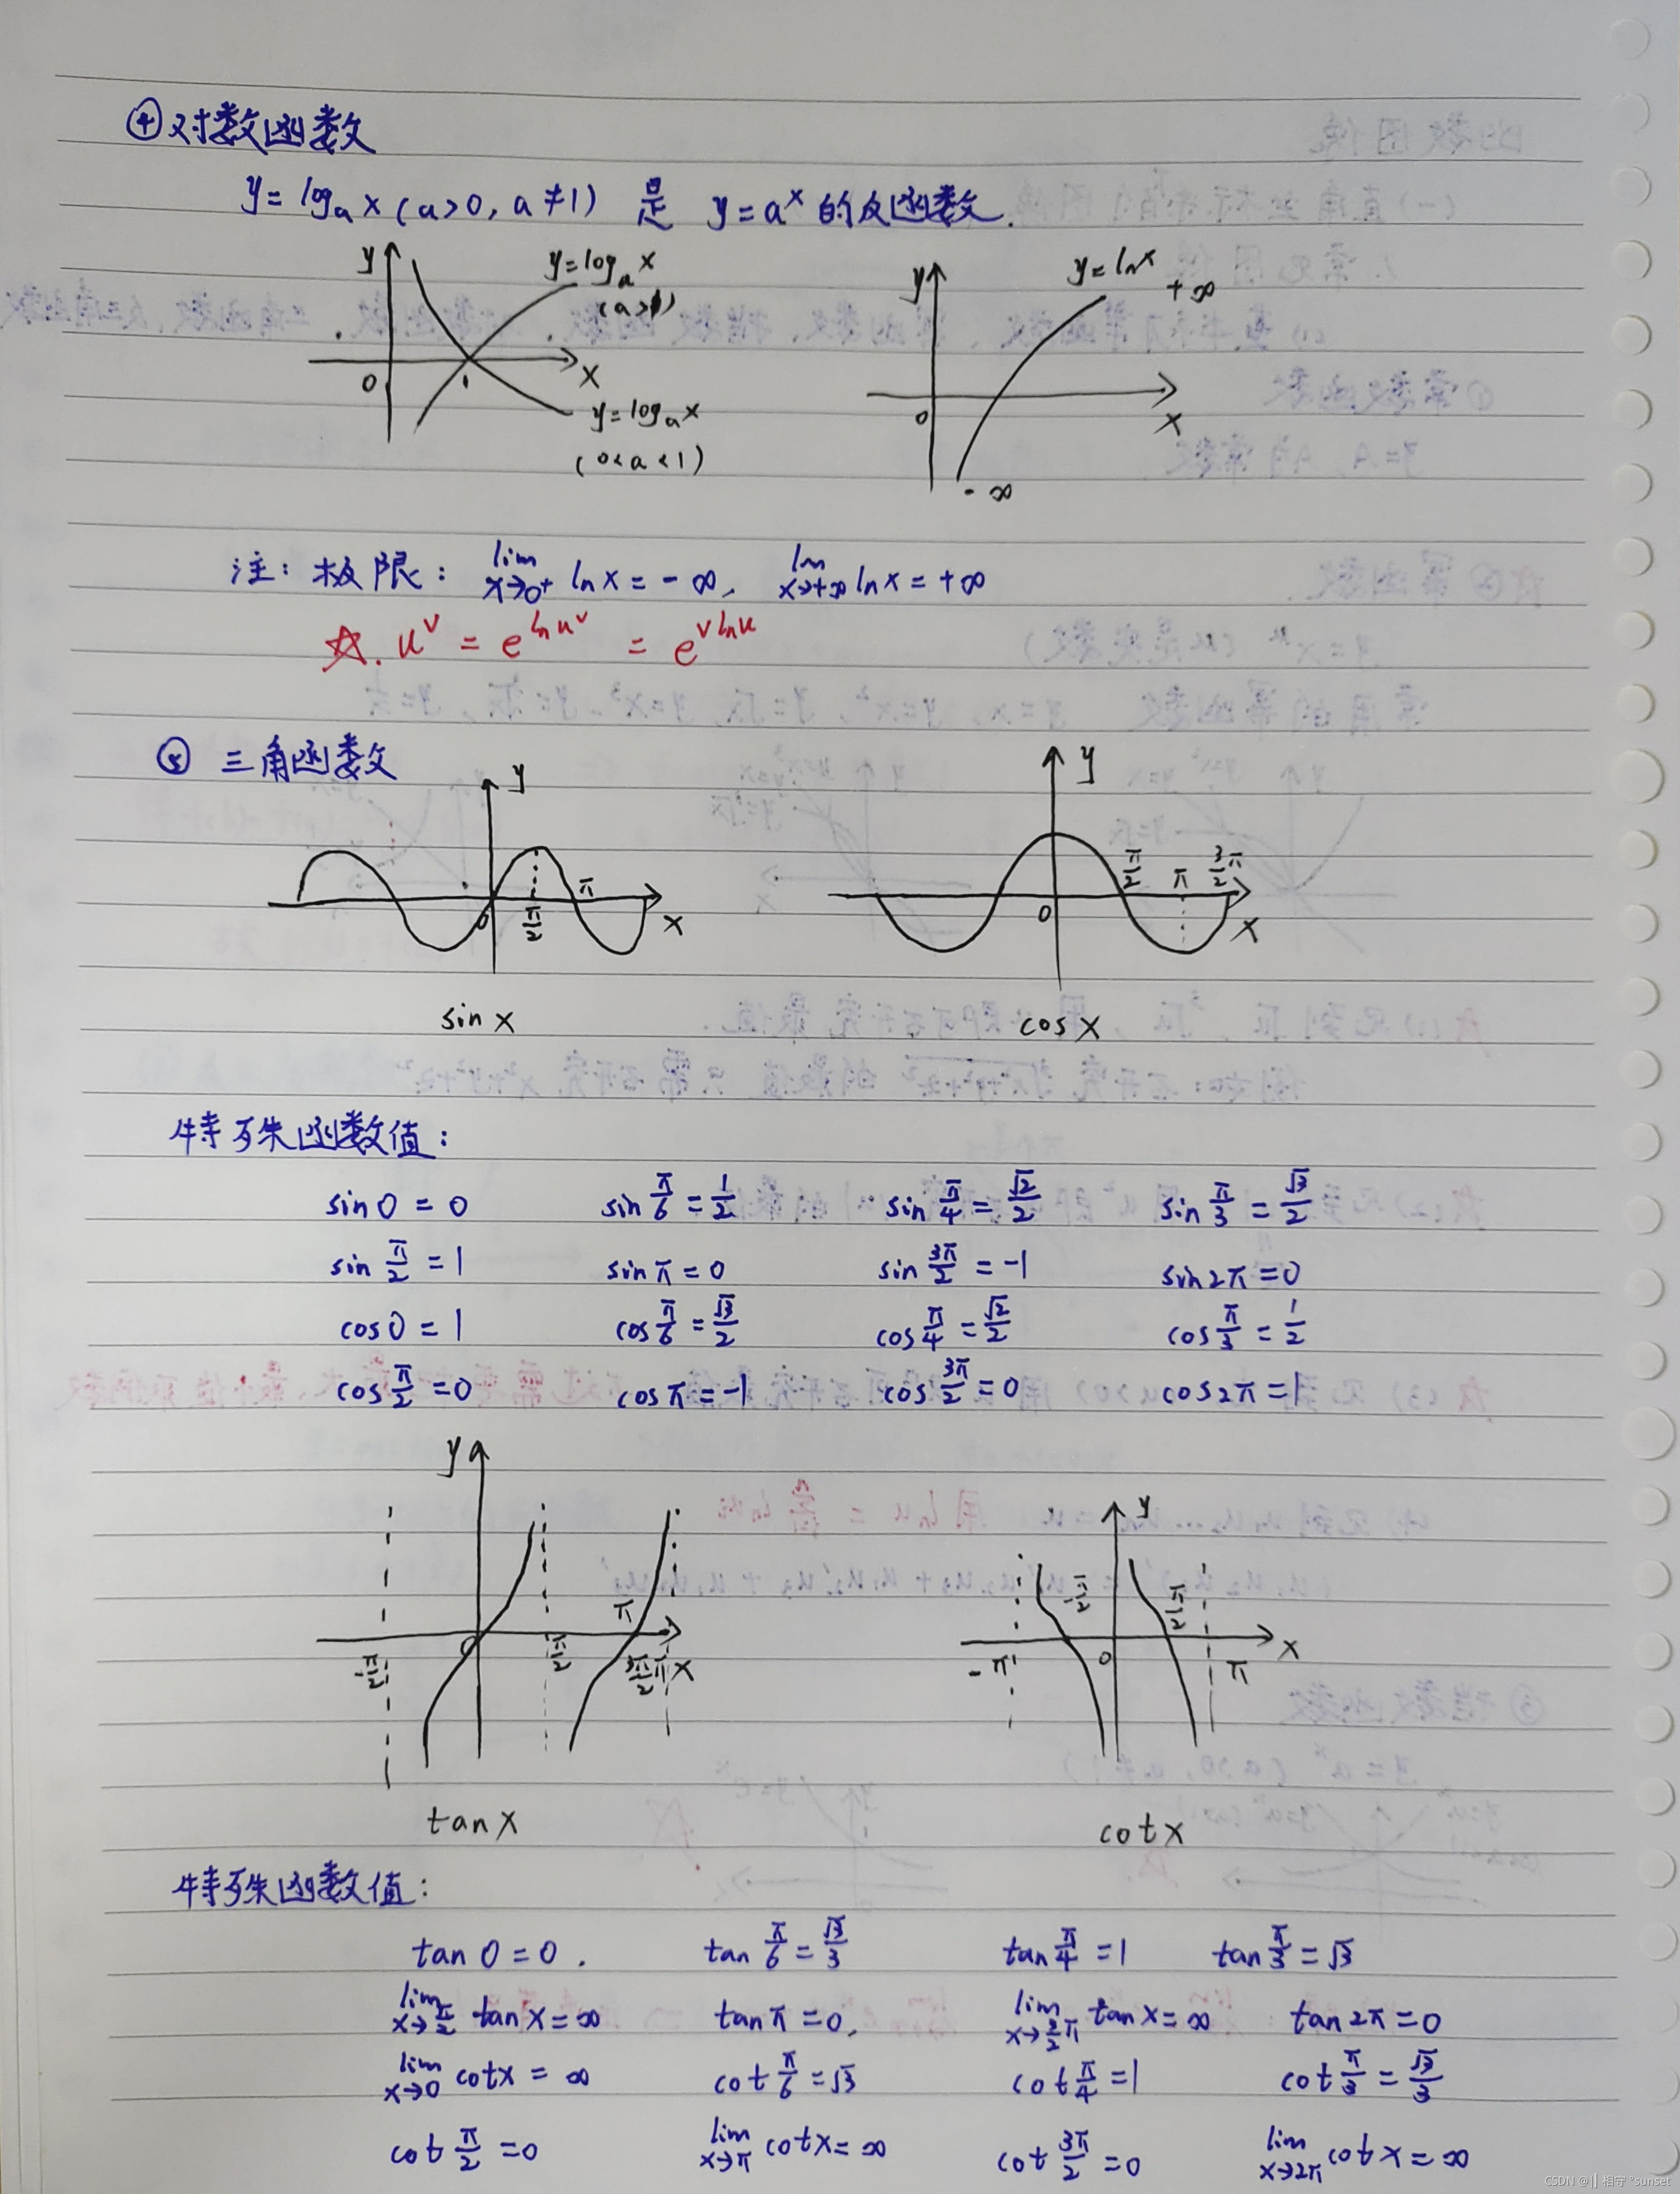 ④对数函数
y=logₐx(a>0,a≠1) 是 y=aˣ的反函数.
y y=logₐx (a>1)
0 1 x
y=logₐx
(0<a<1)
y y=lnx +∞
0 x
-∞
注:极限: lim x→0⁺ lnx=-∞, lim x→+∞ lnx=+∞
☆. uᵛ = e^(lnuᵛ) = e^(vlnu)
⑤ 三角函数
y
0 π/2 π x
sinx
y
0 π/2 π 3/2π x
cosx
特殊函数值:
sin0=0 sinπ/6=1/2 sinπ/4=√2/2 sinπ/3=√3/2
sinπ/2=1 sinπ=0 sin3π/2=-1 sin2π=0
cos0=1 cosπ/6=√3/2 cosπ/4=√2/2 cosπ/3=1/2
cosπ/2=0 cosπ=-1 cos3π/2=0 cos2π=1
y
-π/2 0 π/2 π x
tanx
y
-π -π/2 0 π/2 π x
cotx
特殊函数值:
tan0=0. tanπ/6=√3/3 tanπ/4=1 tanπ/3=√3
lim x→π/2 tanx=∞ tanπ=0, lim x→3/2π tanx=∞ tan2π=0
lim x→0 cotx=∞ cotπ/6=√3 cotπ/4=1 cotπ/3=√3/3
cotπ/2=0 lim x→π cotx=∞ cot3π/2=0 lim x→2π cotx=∞
CSDN @|| 相守 °sunset